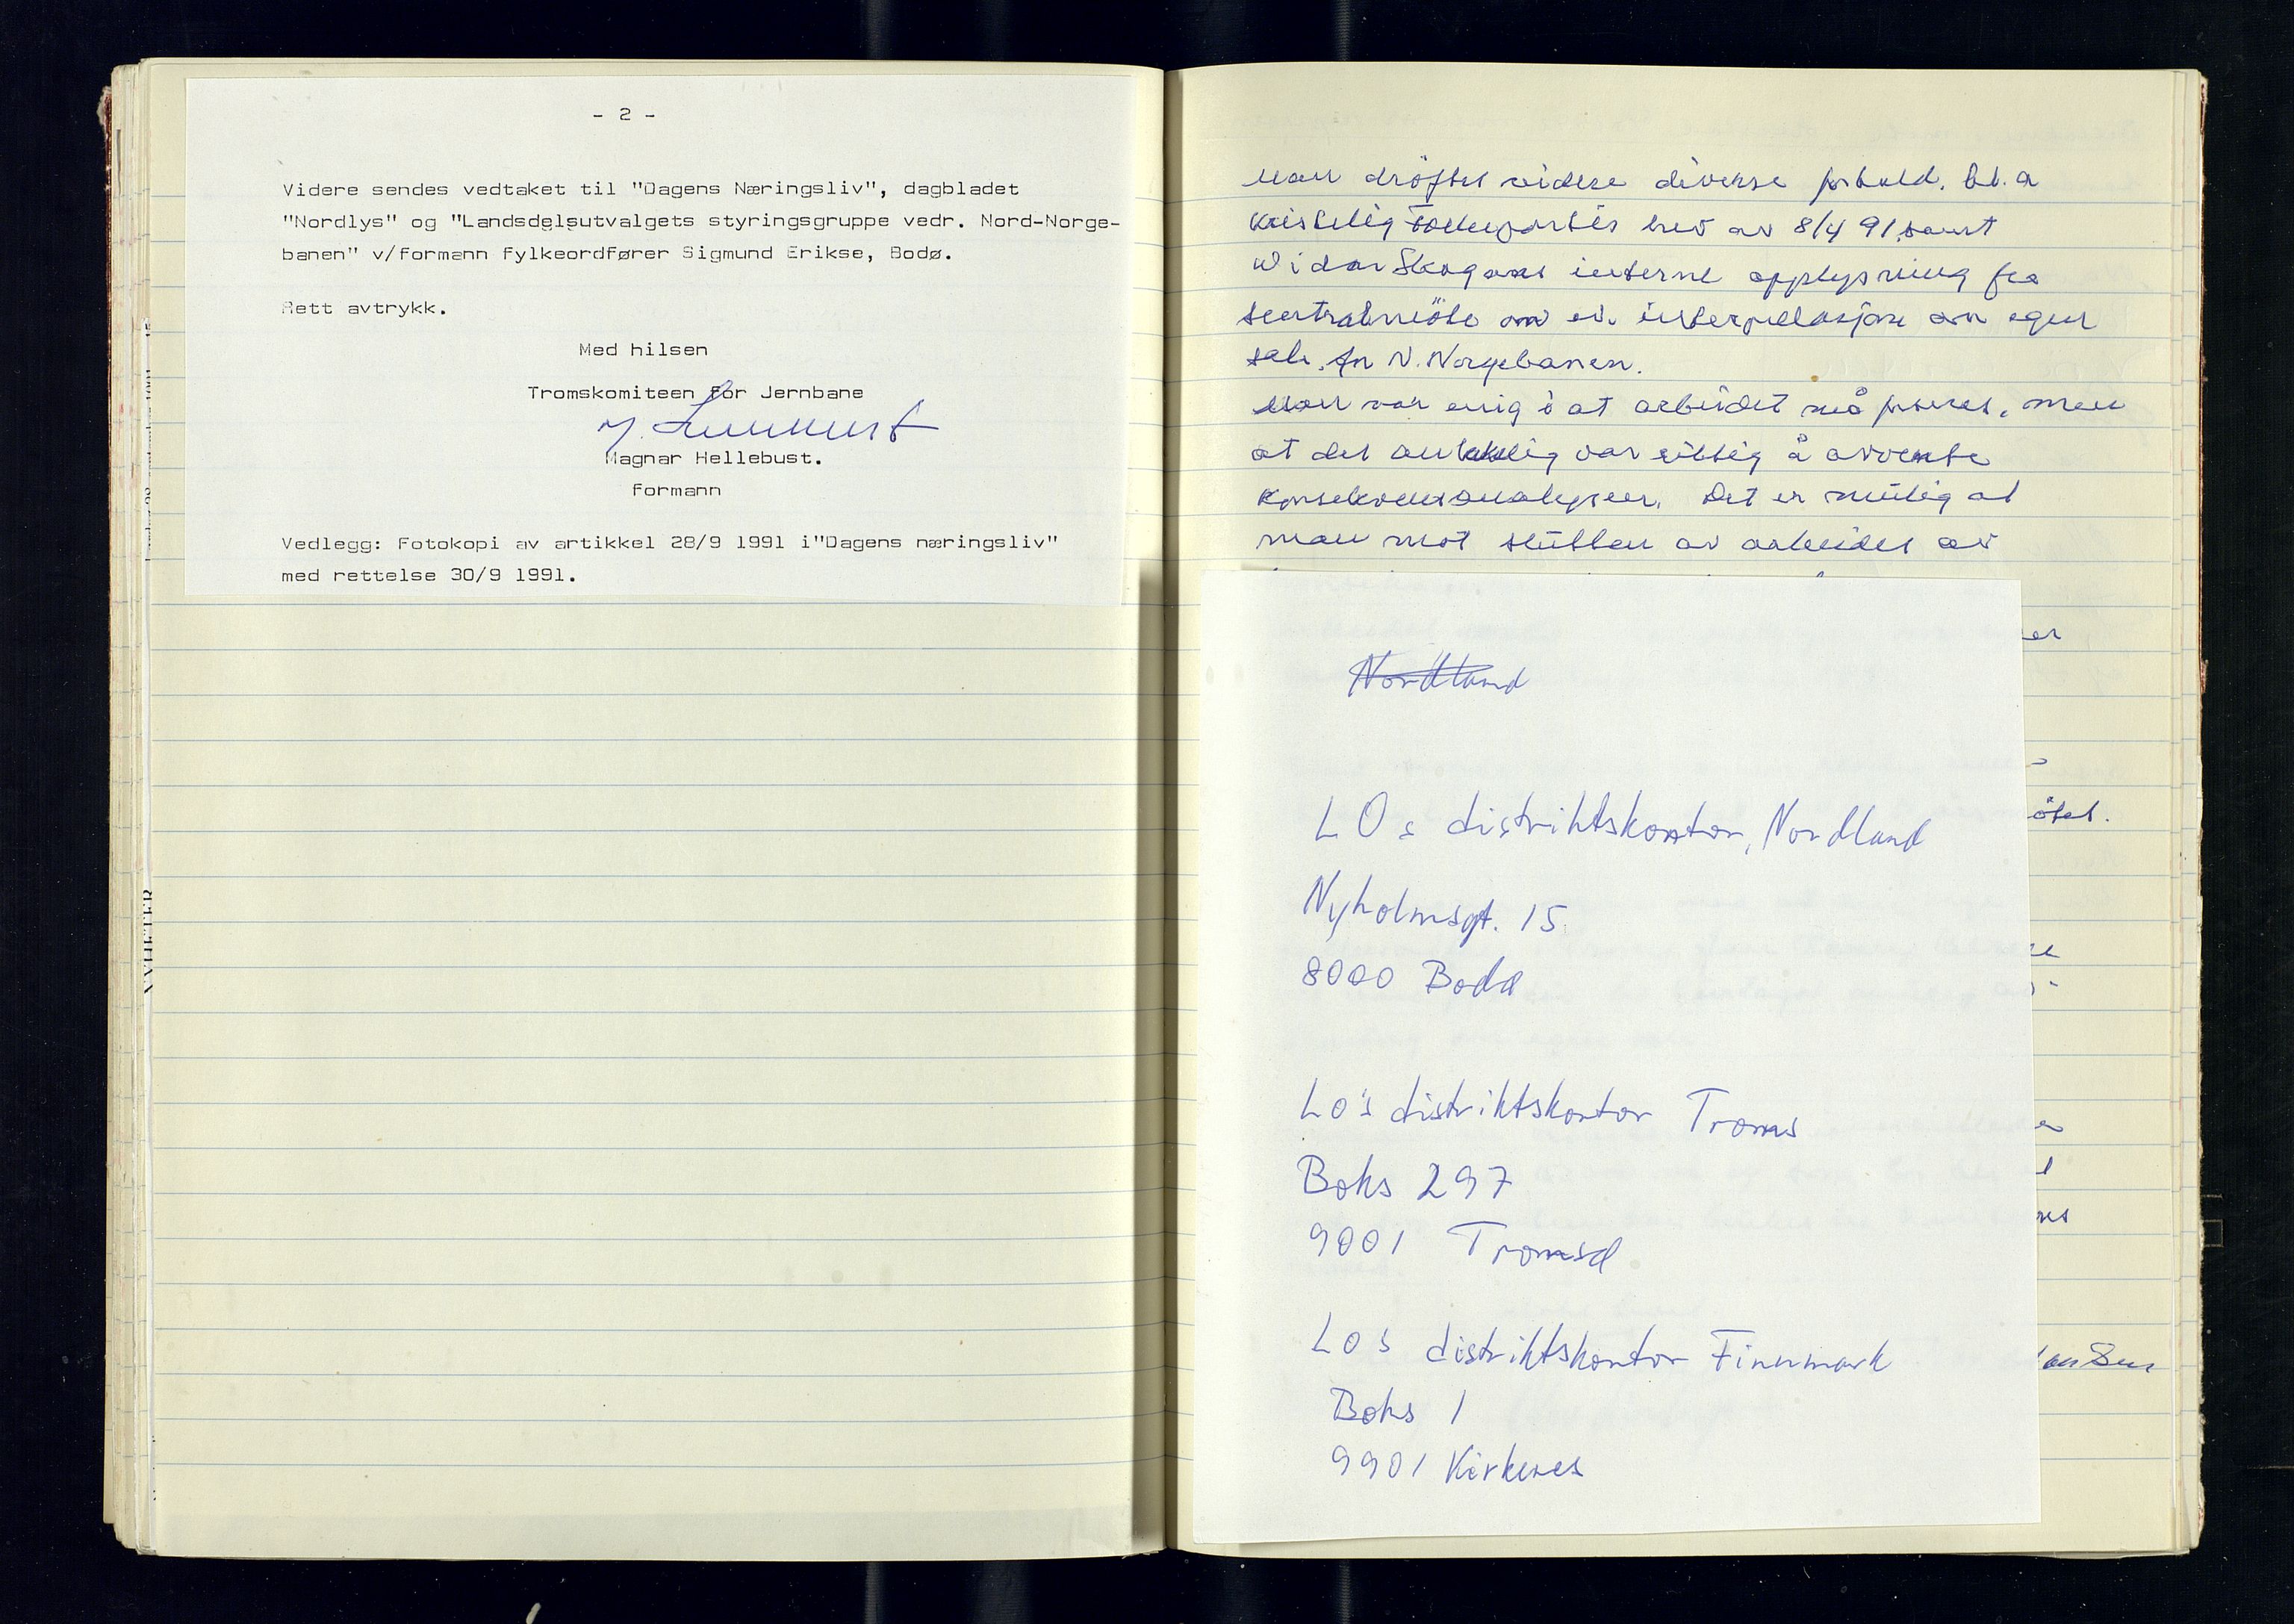 - 2 -
Videre sendes vedtaket til "Dagens Næringsliv", dagbladet
"Nordlys" og "Landsdelsutvalgets styringsgruppe vedr. Nord-Norge-
banen" v/formann fylkeordfører Sigmund Erikse, Bodø.
Rett avtrykk.
Med hilsen
Tromskomiteen for Jernbane
Magnar Hellebust.
formann
Vedlegg: Fotokopi av artikkel 28/9 1991 i"Dagens næringsliv"
med rettelse 30/9 1991.
man drøftet videre diverse forhold. bl.a
Kristelig Folkepartis brev av 8/4 91 samt
Widar Skogans interne opplysning fra
sentralmöte om en interpellasjon om egen
sak for N. Norgebanen.
Man var enig i at arbeidet må forseres, men
at det var riktig å avvente
Konsekvensanalysen. Det er mulig at
man mot slutten av arbeidet
er
ötet.
Nordland
LOs distriktskontor, Nordland
Nyholmsgt. 15
8000 Bodø
Lo's distriktskontor Troms
Boks 297
9001 Tromsø
LO's distriktskontor Finnmark
Boks 1
9901 Kirkenes